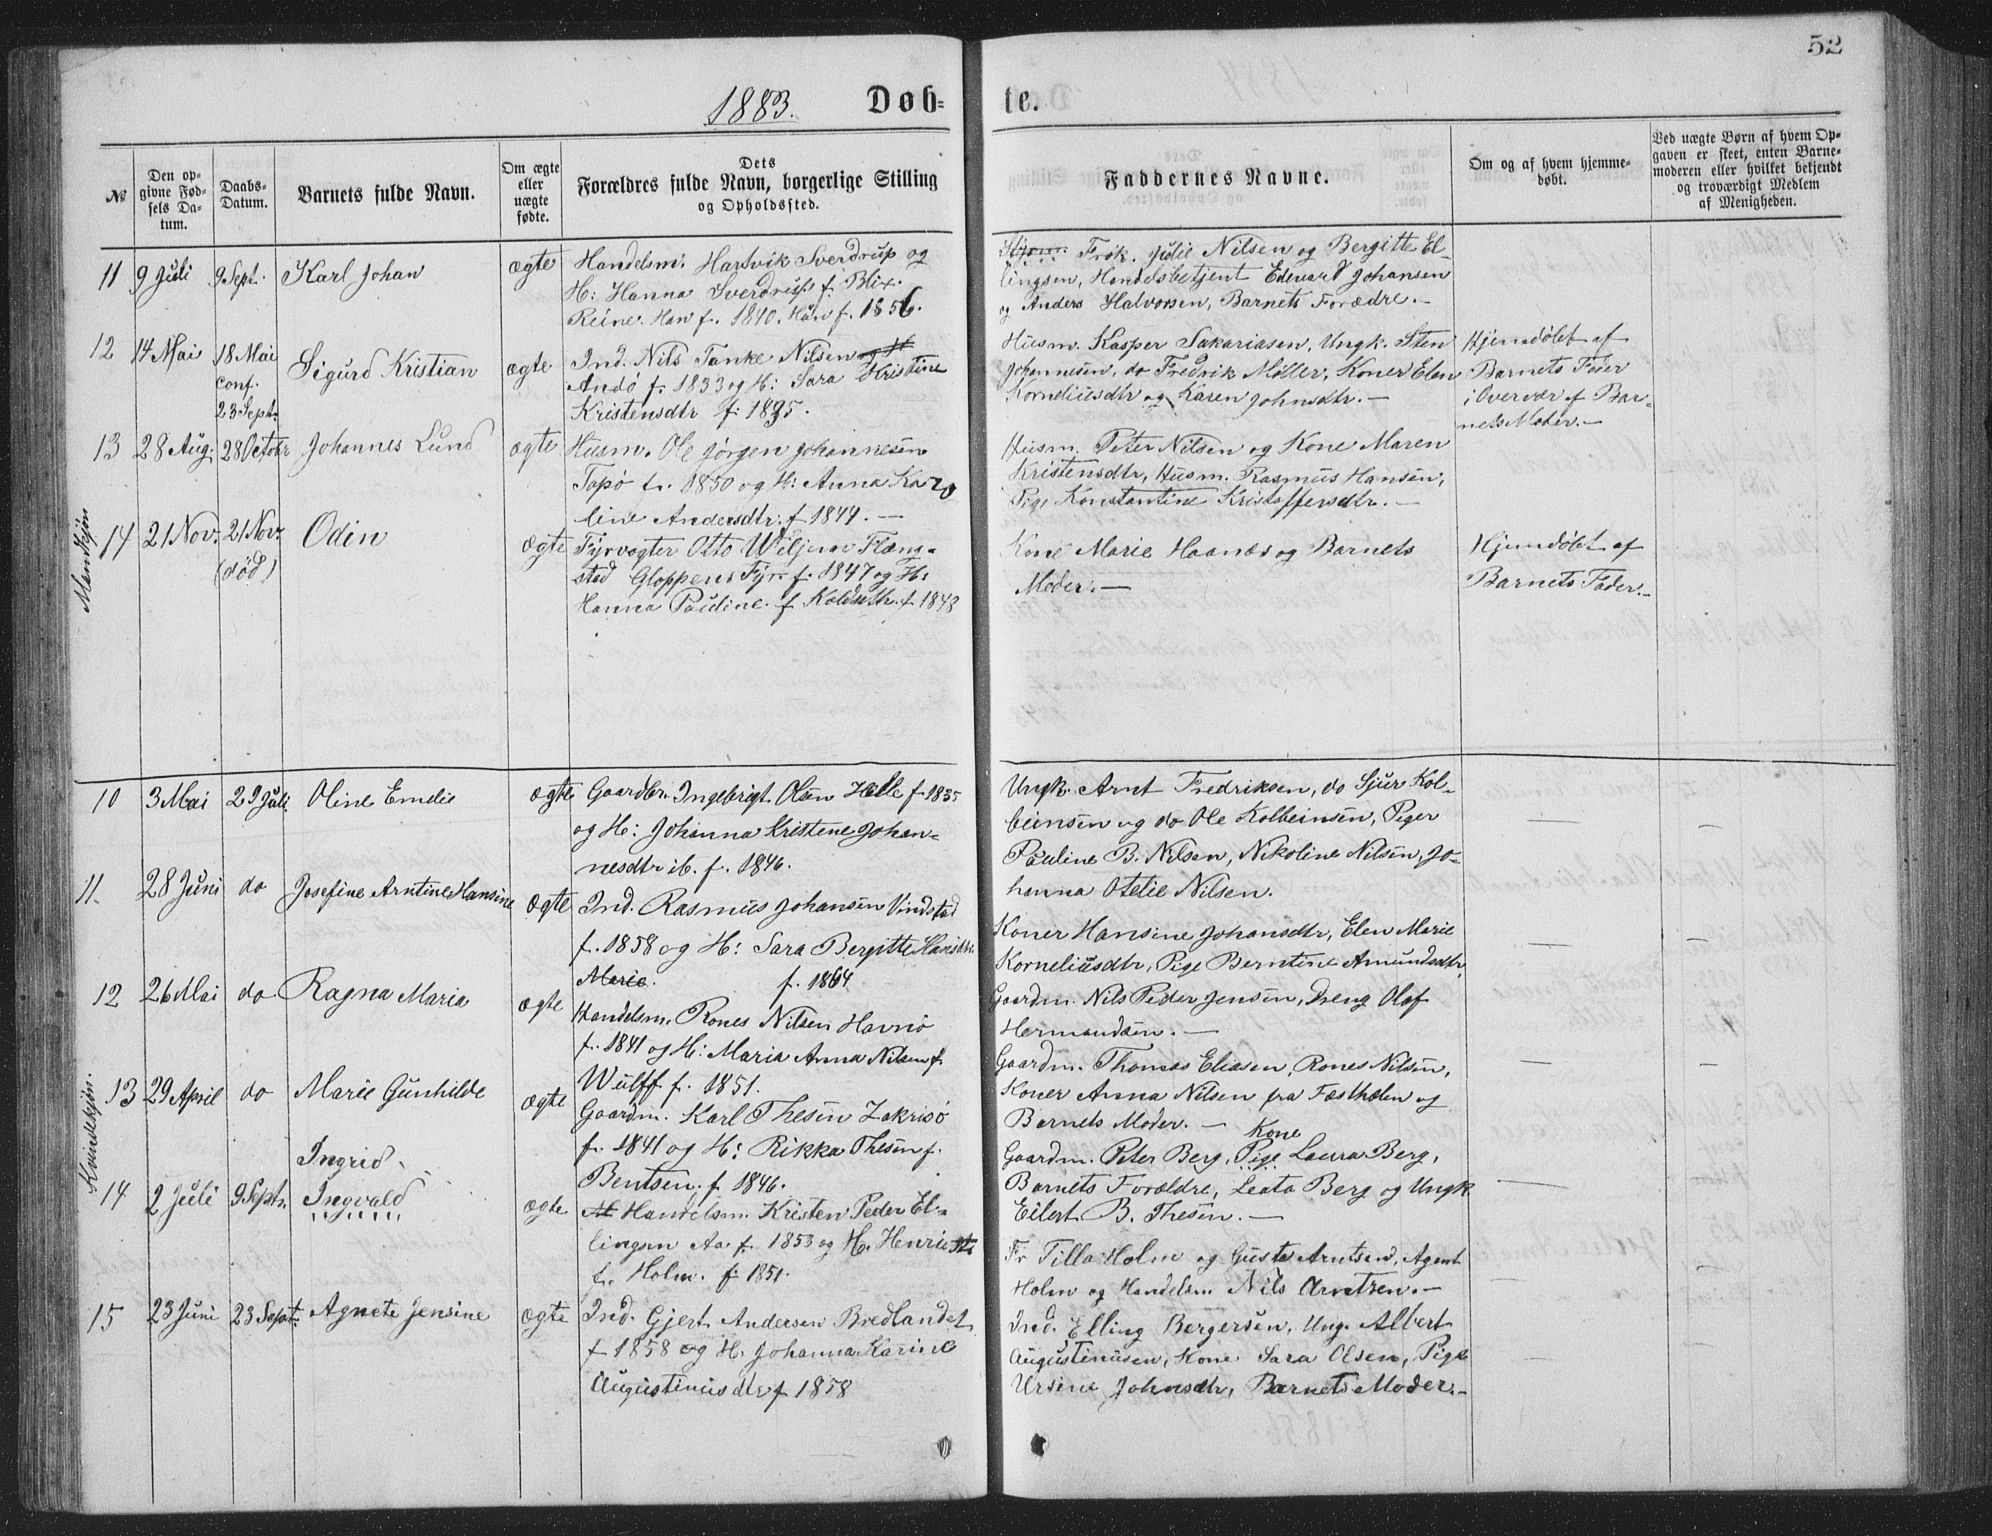 52
1883. Døb-
te.
№
Den op-
givne Fød-
sels Da-
tum.
Daabs-
Datum.
Barnets fulde Navn.
Om ægte
eller
uægte
fødte.
Dets
Forældres fulde Navn, borgerlige Stilling
og Opholdssted.
Faddernes Navne.
Om og af hvem hjemme-
døbt.
Ved uægte Børn af hvem Op-
gaven er skeet, enten Barne-
moderen eller hvilket bekjendt
og troværdigt Medlem
af Menigheden.
Mandkjøn
11 9 Juli 9 Sept. Karl Johan ægte
Handelsm. Hartvik Sverdrup og
H: Hanna Sverdrup f. Blix.
Reine. Han f. 1840. Hun f. 1856.
Frøk. Julie Nilsen og Bergitte El-
lingsen, Handelsbetjent Edevard Johansen
og Anders Halvorsen, Barnets Forædre.-
12 14 Mai 18 Mai
conf.
23 Sept. Sigurd Kristian ægte
Ind. Nils Tanke Nilsen
Andø f. 1833 og H: Sara Kristine
Kristensdtr f. 1835.
Husm. Kasper Sakariasen, Ungk. Sten
Johannesen, do Fredrik Møller, Koner Elen
Korneliusdtr og Karen Johnsdtr.-
Hjemdøbt af
Barnets Fader
i Overvær af Bar-
nets Moder.-
13 28 Aug. 28 Octobr Johannes Lund ægte
Husm. Ole Jørgen Johannesen
Topø f. 1850 og H: Anna Karo
line Andersdtr. f 1849.-
Husm. Peter Nilsen og Kone Maren
Kristensdtr, Husm. Rasmus Hansen,
Pige Konstantine Kristoffersdtr.-
14 21 Nov. 21 Nov.
(død) Odin ægte
Fyrvogter Otto Wiljum Flæng-
stad Gloppens Fyr f. 1847 og H:
Hanna Paudine f. f. 1848
Kone Marie Haanes og Barnets
Moder.-
Hjemdøbt af
Barnets Fader.-
Kvindekjøn.
10 3 Mai 29 Juli Oline Emelie ægte
Gaardbr. Ingebrigt Olsen Helle f. 1835
og H: Johanna Kristene Johan-
nesdtr ib. f. 1846.
Ungk. Arnt Fredriksen, do Sjur Kol-
beinsen og do Ole Kolbeinsen, Piger
Pauline B. Nilsen, Nikoline Nilsen, Jo-
hanna Otelie Nilsen.
11. 28 Juni do Josefine Arntine Hansine ægte
Ind. Rasmus Johansen Vindstad
f. 1858 og H: Sara Bergitte Hansdtr.
Marie. f. 1864
Koner Hansine Johansdtr, Elen Marie
Korneliusdtr, Pige Berntine Amundsdtr,
Gaardm. Nils Peder Jensen, Dreng Olaf
Hermandsen.-
12 26 Mai do Ragna Maria ægte
Handelsm. Rones Nilsen Havnø
f. 1841 og H: Maria Anna Nilsen f.
Wulff f. 1851.
Gaardm. Thomas Eliasen, Rones Nilsen,
Koner Anna Nilsen fra Fæsthælen og
Barnets Moder.-
13 29 April do Marie Gunhilde ægte
Gaardm. Karl Thesen Zakrisø
f. 1841 og H: Rikka Thesen f.
Bentsen. f 1846.
Kone
Gaardm. Peter Berg, Pige Laura Berg,
Barnets Forældre, Leata Berg og Ungk
Eilert B. Thesen.-
Ingrid.
14 2 Juli 9 Septr. Ingvald ægte
Handelsm. Kristen Peder El-
lingsen Aa f. 1853 og H. Henriette
f. Holm. f. 1851.
Fr Tilla Holm og Gusta Arntsen, Agent
Holm og Handelsm Nils Arntsen.-
15 23 Juni 23 Sept. Agnete Jensine ægte
Ind. Gjert Andersen Bredlandet
f 1858 og H. Johanna Karine
Augustinusdtr f 1858
Ind. Elling Bergersen, Ung. Albert
Augustinusen, Kone Sara Olsen, Pige
Ursine Johnsdtr, Barnets Moder.-